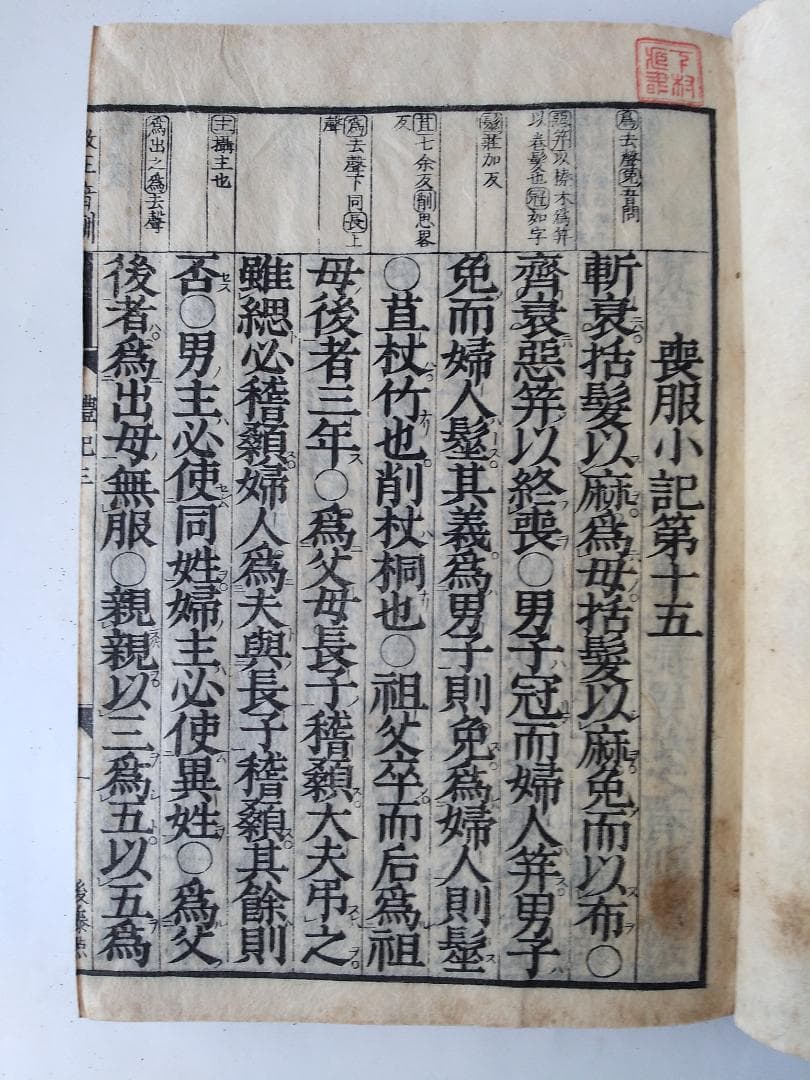 喪服小記第十五
斬衰括髮以麻爲母括髮以麻免而以布○
齊衰惡笄以終喪○男子冠而婦人笄男子
免而婦人髽其義爲男子則免爲婦人則髽
○苴杖竹也削杖桐也○祖父卒而后爲祖
母後者三年○爲父母長子稽顙大夫弔之
雖緦必稽顙婦人爲夫與長子稽顙其餘則
否○男主必使同姓婦主必使異姓○爲父
後者爲出母無服○親親以三爲五以五爲
爲去聲免音問
惡笄以榛木爲笄
以卷髮也冠如字
髽莊加反
苴七余反削思畧
反
爲去聲下同長上
聲
主攝主也
爲出之爲去聲
禮記三
一
後藤点